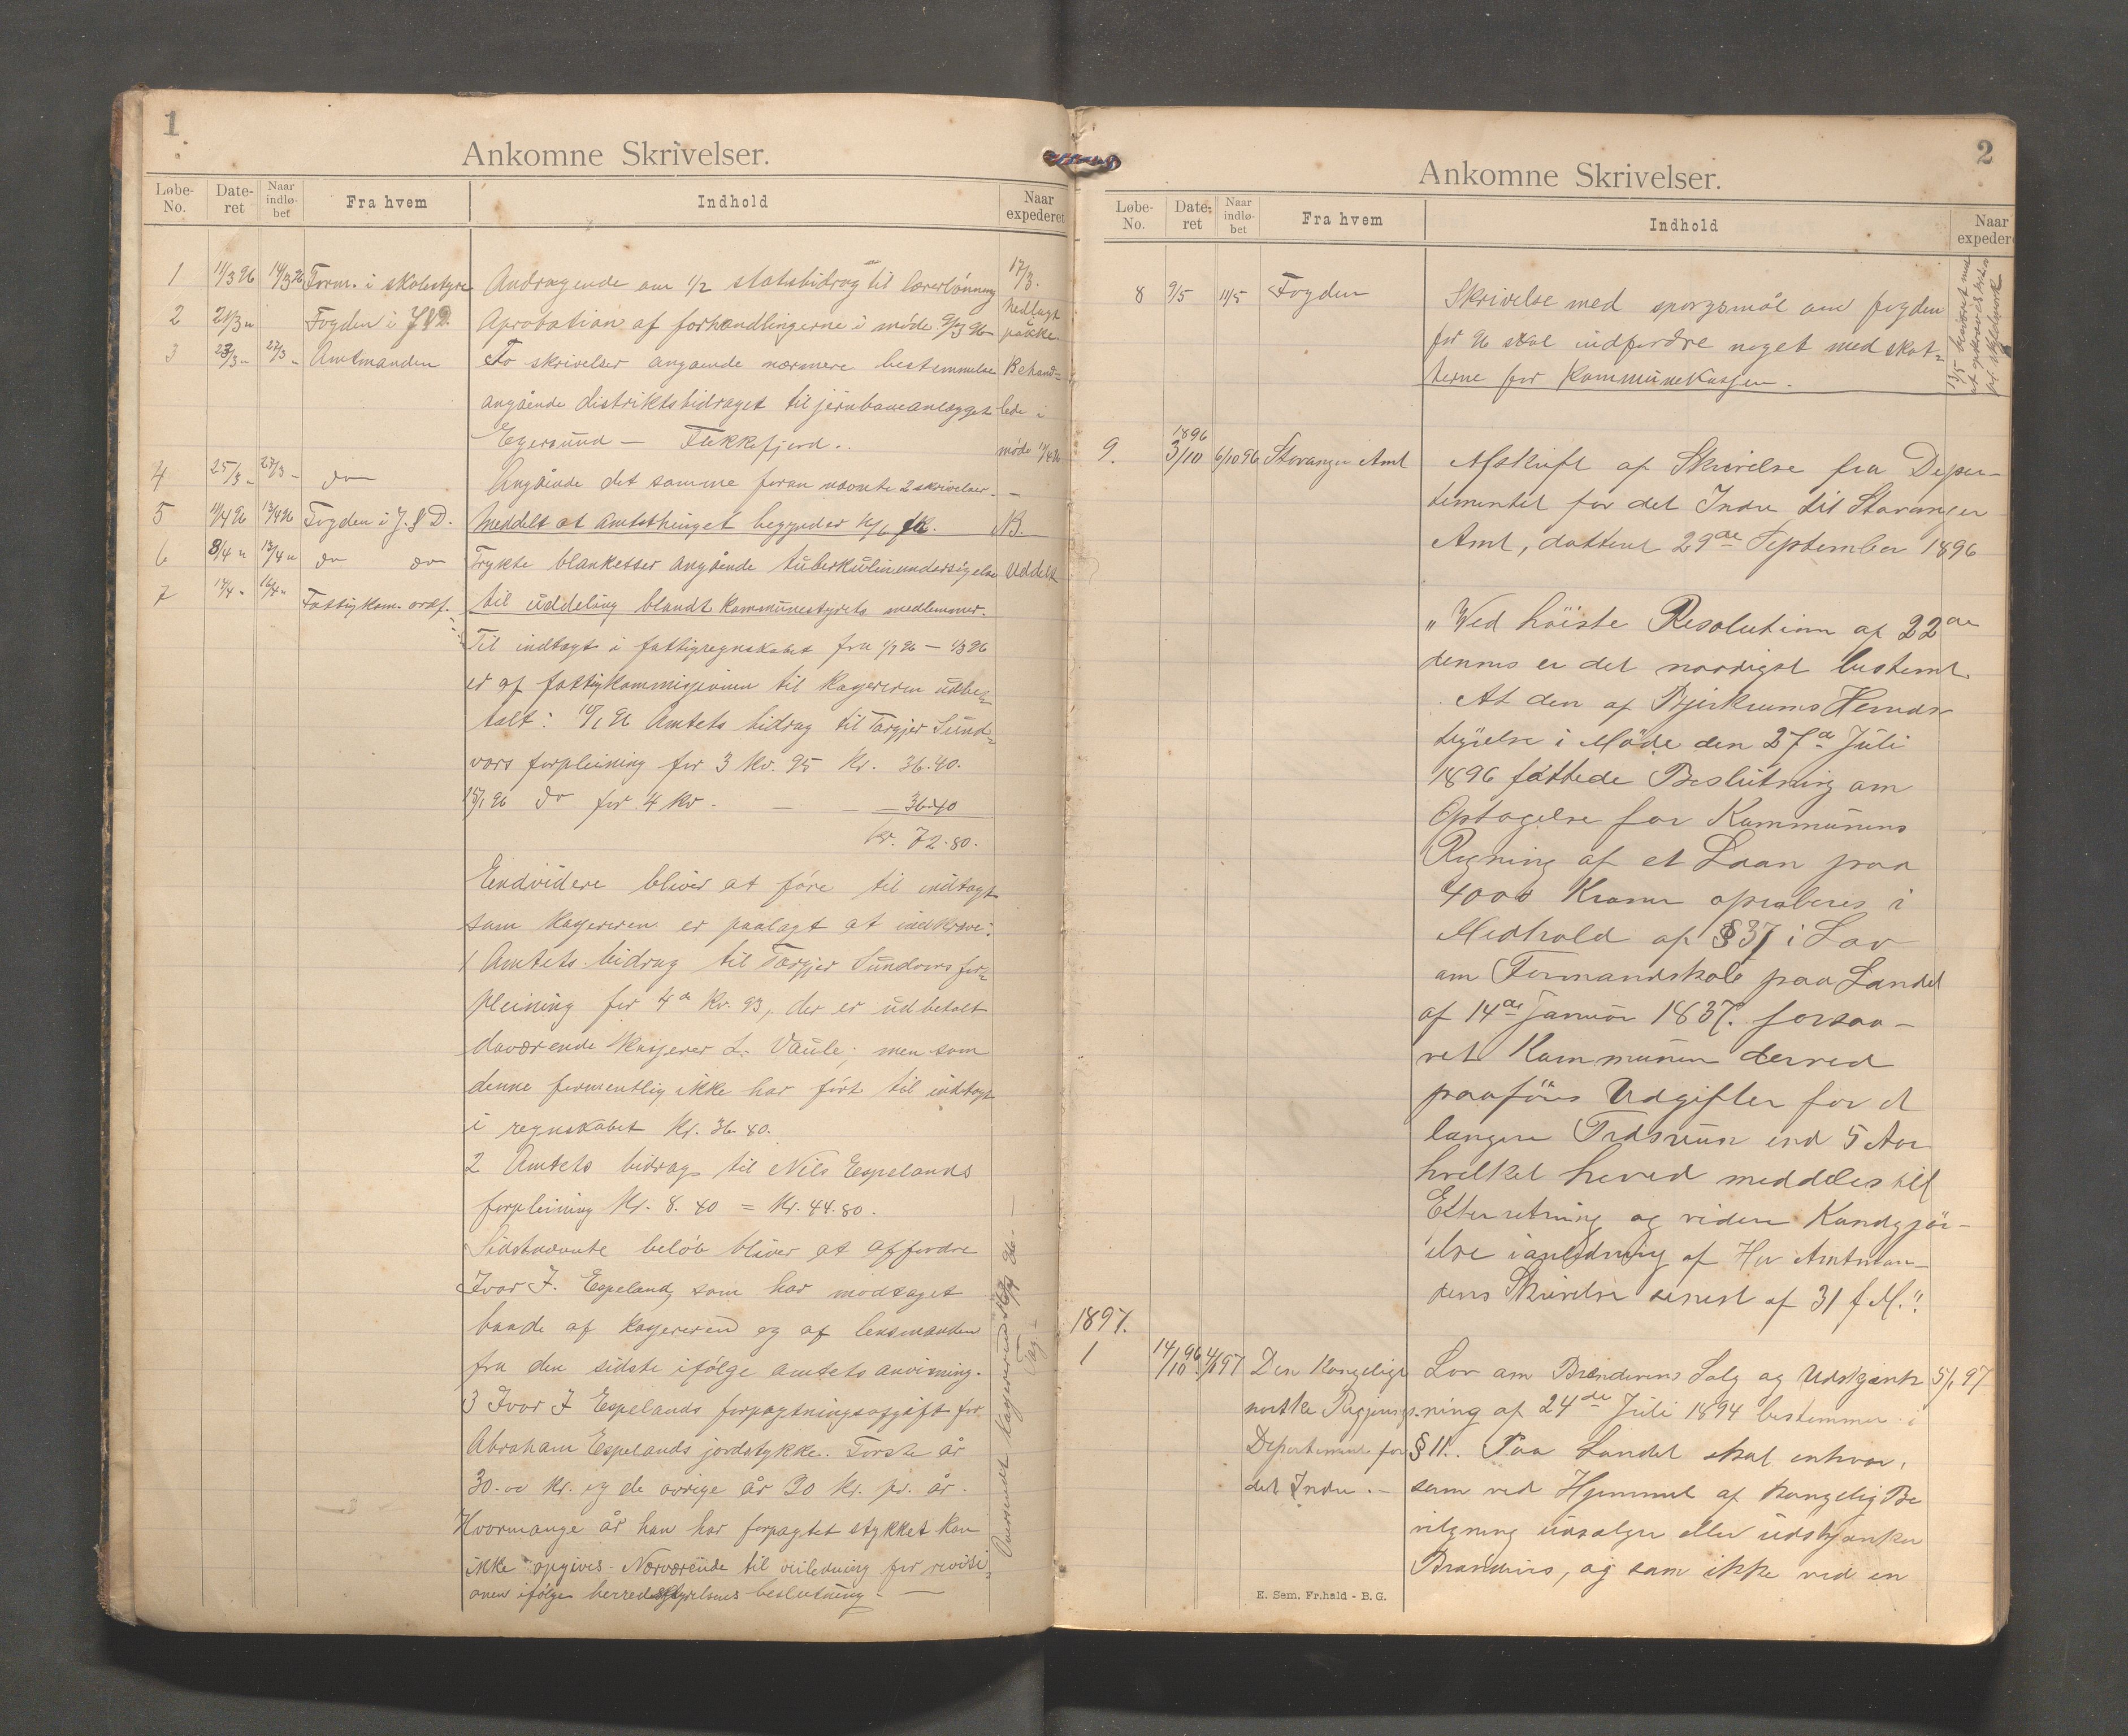 1
Ankomne Skrivelser.
Løbe-No. Date-ret Naar indlø-bet Fra hvem Indhold Naar expederet
1 11/3 96 14/3 96 Form. i skolestyre Andragende om 1/2 statsbidrag til lærerlönning 17/3.
2 21/3 " Fogden i J & D Aprobation af forhandlingerne i møde 9/3 96 Nedlagt pakke.
3 23/3 - 27/3 - Amtmanden To skrivelser angaaende nærmere bestemmelse Behand-
angående distriktsbidraget til jernbaneanlægget lede i
Egersund — Flekkefjord. møde 17/4 96
4 25/3 - 27/3 - do Angående det samme foran nævnte 2 skrivelser. —
5 11/4 96 13/4 96 Fogden i J. & D. Meddelt at Amtsthinget begynder NB.
6 8/4 " 13/4 " do do Trykte blanketter angående tuberkulinundersøgelse Uddelt
7 14/4 " 16/4 " Fattigkom. ordf. til uddeling blandt kommunestyrets medlemmer.
Til indtægt i fattigregnskabet fra 1/1 96 — 1/3 96
er af fattigkommissionen til kassereren udbe-
talt: 10/1 96 Amtets bidrag til Targjer Sund-
vors forpleining for 3 kv. 95 Kr. 36.40.
15/1 96 do for 4 kv. — — 36.40
Kr. 72.80.
Endvidere bliver at føre til indtægt
som kassereren er paalagt at indkræve:
1 Amtets bidrag til Targjer Sundvors for-
pleining for 4de Kv. 93, der er udbetalt
daværende kasserer L. Vaule; men som
denne formentlig ikke har fört til indtægt
i regnskabet Kr. 36.40.
2 Amtets bidrag til Nils Espelands
forpleining Kr. 8.40 = Kr. 44.80.
Sidstnævnte beløb bliver at affordre
Ivar J. Espeland, som har modtaget
baade af kassereren og af lensmanden
fra den sidste ifølge amtets anvisning.
3 Ivar J Espelands forpagtningsafgift for
Abraham Espelands jordstykke. Første år
30.00 Kr. og de øvrige år 20 Kr. pr. år.
Hvormange år han har forpagtet stykket kan
ikke opgives. Nærværende til veiledning for revisi-
onen ifølge herredsstyrelsens beslutning. —
Oversendt kassereren 96. —
2
Ankomne Skrivelser.
Løbe-No. Date-ret Naar indlø-bet Fra hvem Indhold Naar expedere
8 9/5 11/5 Fogden Skrivelse med sporgsmål om fogden
for 96 skal indfordre noget med skat-
terne for Kommunekassen.
9. 1896 3/10 6/10 96 Stavanger Amt Afskrift af Skrivelse fra Depar-
tementet for det Indre til Stavanger
Amt, dattert 29de September 1896
"Ved höieste Resolution af 22de
dennes er det naadigst bestemt.
At den af Bjerkreims Herreds-
styrelse i Møde den 27de Juli
1896 fattede Beslutning om
Optagelse for Kommunens
Regning af et Laan paa
4000 Kroner aproberes i
Medhold af § 37 i Lov
om Formandskab paa Landet
af 14de Januar 1837. forsaa-
vet Kommunen derved
paaføres Udgifter for et
længere Tidsrum end 5 Aar
hvilket herved meddeles til
Efterretning og videre Kundgjör-
else i anledning af Hr Amtman-
dens Skrivelse senest af 31 f.M."
1897.
1 14/10 96 4/1 97 Den Kongelige Lov om Brændevins Salg og Udskjænk- 5/1 97
norske Regjerings- ning af 24de Juli 1894 bestemmer i
Departement for § 11. Paa Landet skal enhver,
det Indre. — som ved Hjemmel af kongelig Be
vilgning udsælger eller udskjænker
Brændevin, og som ikke ved en
E. Sem. Fr.hald - B. G.